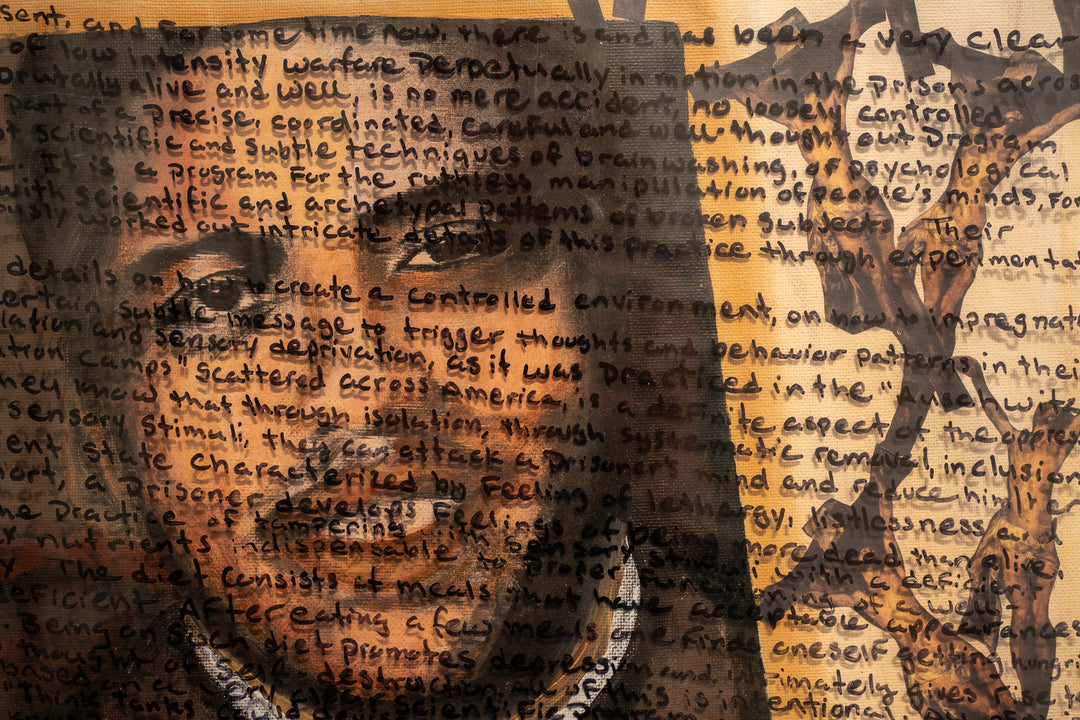 sent, and for some time now, there is and has been a very clear
of low intensity warfare perpetually in motion in the prisons across
brutally alive and well, is no mere accident, no loosely controlled
part of a precise, coordinated, careful and well-thought out program
of scientific and subtle techniques of brainwashing, of psychological
It is a program for the ruthless manipulation of people's minds, for
with scientific and archetypal patterns of broken subjects. Their
ously worked out intricate details of this practice through experimentat
details on how to create a controlled environment, on how to impregnate
certain subtle message to trigger thoughts and behavior patterns in their
lation and sensory deprivation, as it was practiced in the "Auschwitz
tration camps" scattered across America, is a definite aspect of the oppress
hey know that through isolation, through systematic removal, inclusion
sensory stimuli, they can attack a prisoner's mind and reduce him/her
ent state characterized by feeling of lethargy, listlessness and
hort, a prisoner develops feelings of being more dead than alive.
he practice of tampering with sensory stimuli with a deficient
y nutrients indispensable to proper functioning of a well-
y The diet consists of meals that have acceptable appearances
deficient. After eating a few meals one finds oneself getting hungri
Being on such diet promotes depression and, ultimately gives rise to
thought of self-destruction. All of this is intentional
based on a very clear scientific
"think tanks"